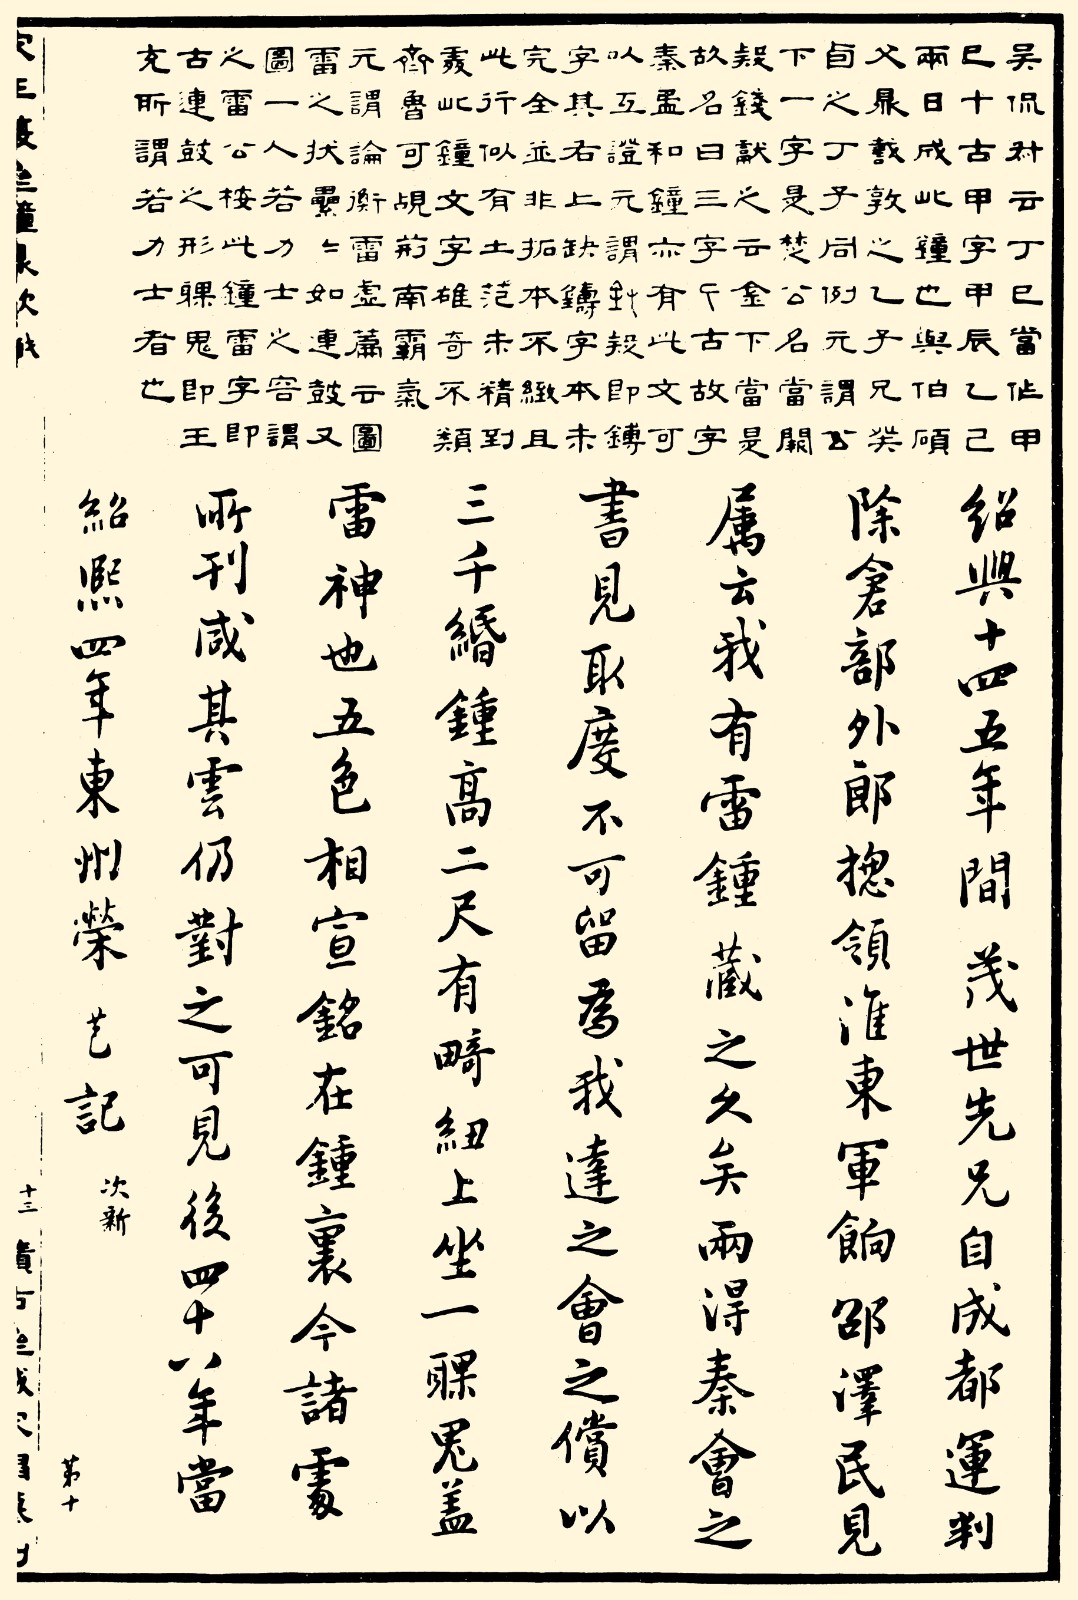 吳侃叔云丁巳當作甲
巳十古甲字甲辰乙己
兩日成此鐘也與伯碩
父鼎敦之乙子兄癸
卣之丁子同例元謂公
下一字是楚公名當闕
錢獻之云金下當是
故名曰三字乍古故字
秦盄和鐘亦有此文可
以互證元謂即鎛
字其右上缺鑄字本未
完全並非拓本不緻且
此行似有土范未精到
此鐘文字雄奇不類
齊魯可覘荊南霸氣
元謂論衡雷虛篇云圖
雷之狀纍〻如連鼓又
圖一人若力士之容謂
之雷公桉此鐘雷字即
古連鼓之形臝鬼即王
充所謂若力士者也
紹興十四五年間茂世先兄自成都運判
除倉部外郎摠領淮東軍餉邵澤民見
屬云我有雷鍾藏之久矣兩得秦會之
書見取度不可留為我達之會之償以
三千緡鍾高二尺有畸紐上坐一臝鬼蓋
雷神也五色相宣銘在鍾裏今諸處
所刊咸其雲仍對之可見後四十八年當
紹熙四年東州榮芑記
次新
第十
十三